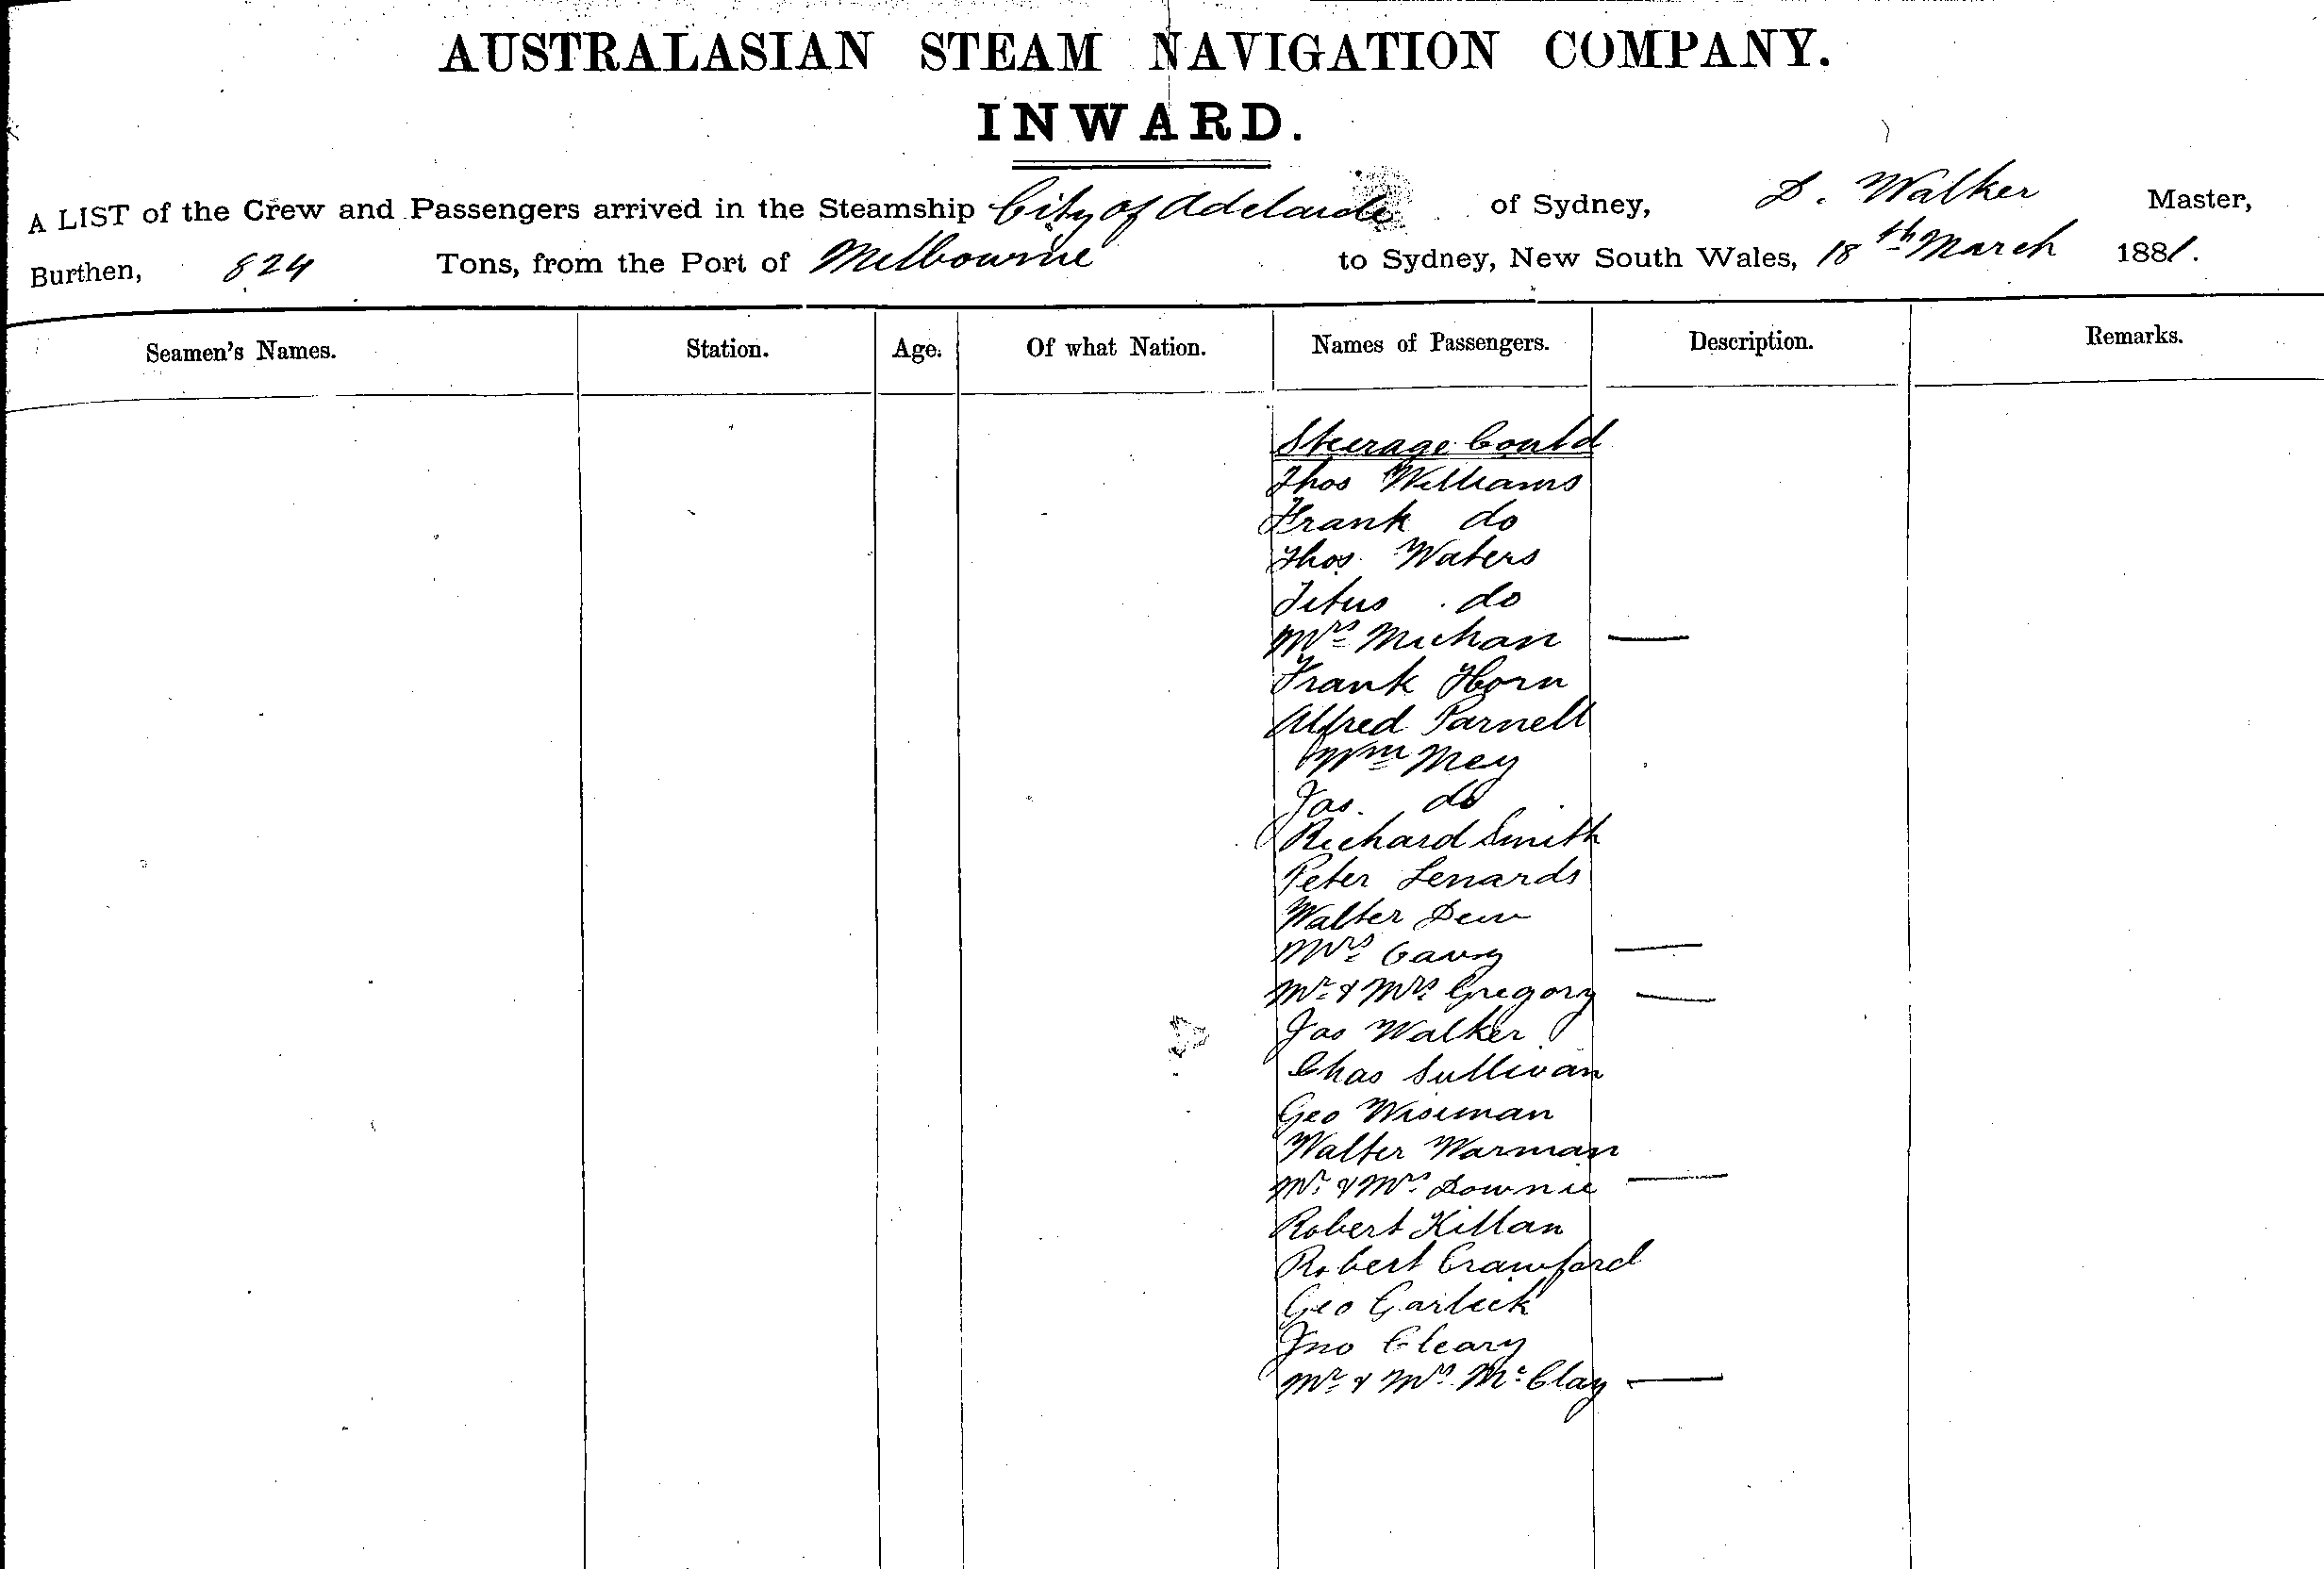 AUSTRALASIAN STEAM NAVIGATION COMPANY.
INWARD.
A LIST of the Crew and Passengers arrived in the Steamship City of Adelaide of Sydney, D. Walker Master,
Burthen, 824 Tons, from the Port of Melbourne to Sydney, New South Wales, 18th March 1881.
Seamen's Names. Station. Age. Of what Nation. Names of Passengers. Description. Remarks.
Steerage Contd
Thos Williams
Frank do
Thos Waters
Titus do
Mrs Michan —
Frank Horn
Alfred Parnell
Wm Mey
Jas. do
Richard Smith
Peter Lenards
Walter Dew
Mrs —
Mr & Mrs Gregory —
Jas Walker
Chas Sullivan
Geo Wiseman
Walter Warman
Mr & Mrs Downie —
Robert Killan
Robert Crawford
Geo Garlick
Jno Cleary
Mr & Mrs McClay —